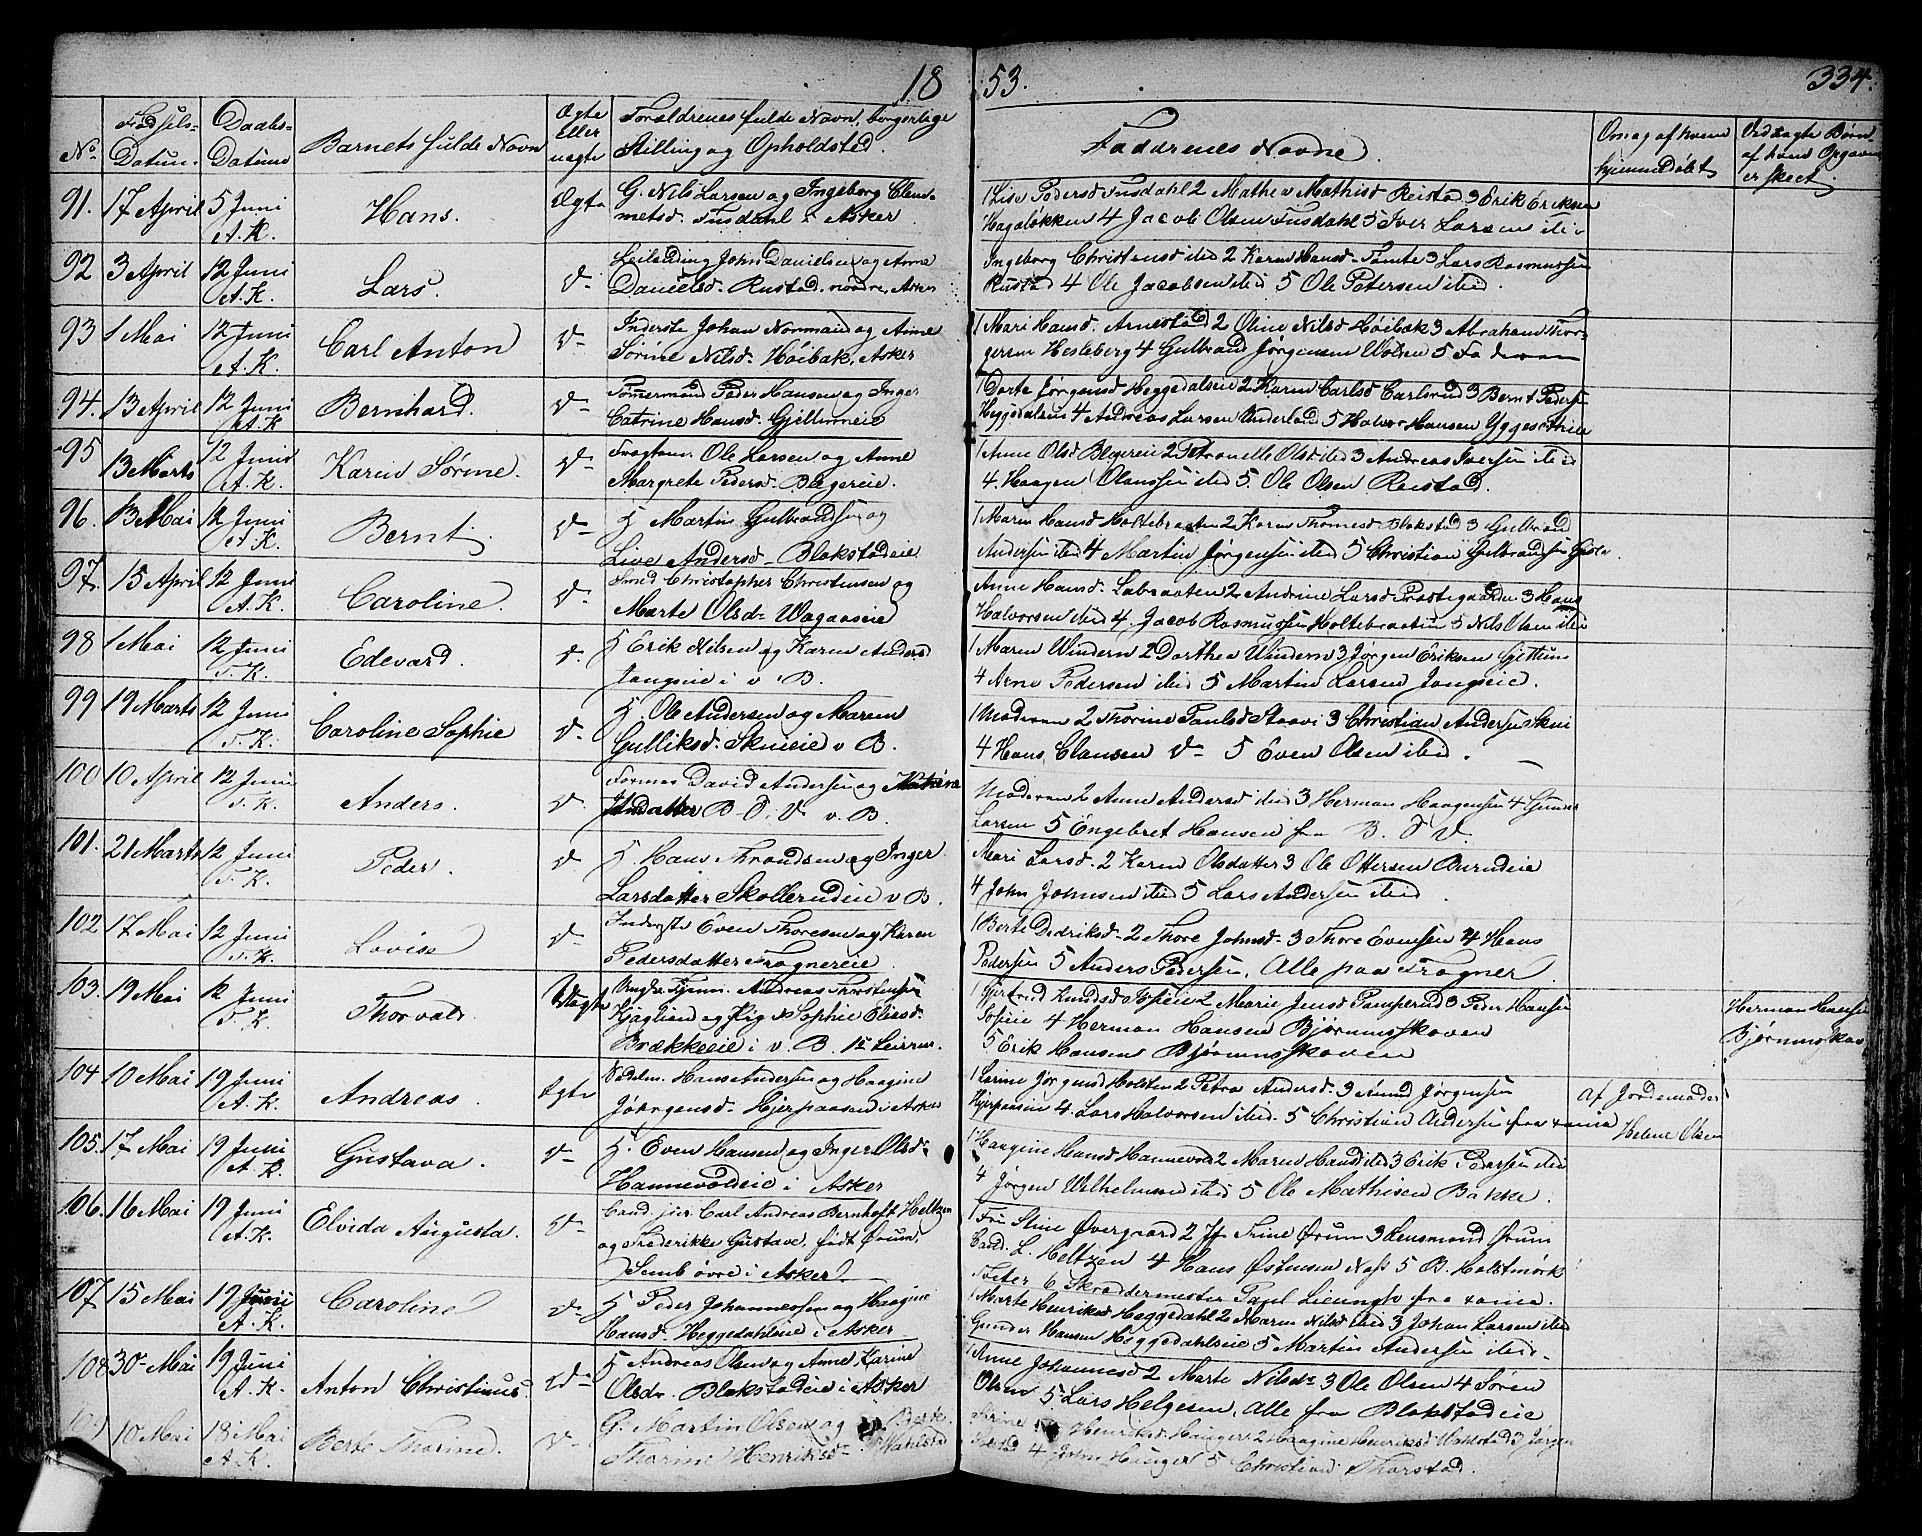 18 53. 334.
No. Fødsels-Datum. Daabs-Datum Barnets fulde Navn Ægte Eller uægte Forældrenes fulde Navn, borgerlige Stilling og Opholdsted. Faddrenes Navne. Om og af hvem hjemmeDøbt Ved uægte Børn af hvem Opgaven er skeet.
91. 17 April 5 Juni A.K. Hans. Ægte G. Nils Larsen og Ingeborg Clemmetsd. Fusdahl i Asker
1 Lise Pedersd Fusdahl 2 Mathea Mathisd Reistad 3 Erik Eriksen
Hagaløkken 4 Jacob Olsen Fusdahl 5 Iver Larsen
92 3 April 12 Juni A.K. Lars. D- Leilending John Danielsen og Anne
Danielsd. Rustad nordre, Asker
Ingeborg Christensd ibid 2 Karen Hansd. Tomte 3 Lars Rasmussen
Rustad 4 Ole Jacobsen ibid 5 Ole Petersen ibid.
93 1 Mai 12 Juni A.K. Carl Anton D- Inderste Johan Normand og Anne
Sørine Nilsd. Høibak, Asker
1 Mari Hansd. Arnestad 2 Oline Nilsd Høibak 3 Abrahem Thor-
gersen Hesleberg 4 Gulbrand Jørgensen Wolsen 5 Faderen
94. 13 April 12 Juni A.K. Bernhard. D- Tømermand Peder Hansen og Inger
Catrine Hansd. Gjellumeie
1 Dorte Jørgensd Heggedalseie 2 Karen Carlsd Carlsrud 3 Bernt Peders
Heggedalseie 4 Andreas Larsen Underland 5 Halvor Hansen
95 13 Marts 12 Juni A.K. Karen Sørine. D- Ole Larsen og Anne
Margrete Pedersd. Bøgereie.
1 Anne Olsd Bøgereie 2 Petronelle Olsd ibid 3 Andreas Iversen ibid
4. Haagen Olaussen ibid 5. Ole Olsen Reistad.
96. 13 Mai 12 Juni A.K. Bernt. D- H Martin Gulbrandsen og
Live Andersd- Blakstadeie
1 Maren Hansd Holtebraaten 2 Karen Thomesd. Blakstad 3 Gulbrand
Andersen ibid 4 Martin Jørgensen ibid 5 Christian Gulbrandsen
97. 15 April 12 Juni A.K. Caroline. D- Smed Christopher Christensen og
Marte Olsdr Wøgaaseie
Anne Hansd. Labraaten 2 Andrine Larsd Præstegaarden 3 Hans
Halvorsen ibid 4. Jacob Rasmussen Holtebraaten 5 Nils Olsen ibid
98 1 Mai 12 Juni T.K. Edevard. D. H Erik Nilsen og Karen Andersd
Tangeie i v. B.
1 Maren Windern 2 Dorthea Windern 3 Jørgen Eriksen Gjettum
4 Arne Pedersen ibid 5 Martin Larsen Jongseie.
99 19 Marts 12 Juni T.K. Caroline Sophie D. H Ole Andersen og Maren
Gulliksd. Skuieie v B.
1 Moderen 2 Thorine Paulsd Staavi 3 Christian Andersen Skui
4 Hans Clausen D- 5 Even Olsen ibid.
100 10 April 12 Juni T.K. Anders. D. Former David Andersen og Kathrine
Jonsdatter B. . V. v. B.
Moderen 2 Anne Andersd ibid 3 Herman Haagensen 4 Gunder
Larsen 5 Engebret Hansen fra B. . V.
101. 21 Marts 12 Juni T.K. Peder. D. H. Hans Trondsen og Inger
Larsdatter Skollerudeie v B.
Mari Larsd. 2 Karen Olsdatter 3 Ole Ottersen Burudeie
4 John Johnsen ibid 5 Lars Andersen ibid.
102 17 Mai 12 Juni T.K. Lovise D- Inderste Even Thoresen og Karen
Pedersdatter Frognereie.
1 Berte Didriksd. 2 Thore Johnsd. 3 Thore Evensen 4 Hans
Pedersen 5 Anders Pedersen, Alle paa Frogner.
103. 19 Mai 12 Juni T.K. Thorvald. Uægte Ungkr Andreas Thorstensen
og Pige Sophie Eliasd.
Brækkeeie i v. B. 1ste Leierm.
1 Gjertrud Knudsd Topeie 2 Marie Jensd Pamperud 3 Peder Hansen
4 Herman Hansen Bjørnnsskoven
5 Erik Hansen Bjørnnsskoven
Herman Hansen
Bjørnnsskov
104 10 Mai 19 Juni A.K. Andreas. Ægte Sadelm. Hans Andersen og Haagine
Jørgensd. Hjerpaasen i Asker
1 Larine Jørgensd Holsten 2 Petra Andersd. 3 Amund Jørgensen
Hjerpaaseie 4 Lars Halvorsen ibid. 5 Christian Andersen fra
af Jordemoder
Helene Olsen
105. 17 Mai 19 Juni A.K. Gustava. D- H. Even Hansen og Inger Olsd.
Hannevoldeie i Asker
1 Haagine Hansd Hannevold 2 Maren Hansd ibid 3 Erik Pedersen ibid
4 Jørgen Wilhelmsen ibid 5 Ole Mathisen Bakke.
106. 16 Mai 19 Juni A.K. Elvida Augusta. D- Cand. jur. Carl Andreas Bernhoft Heltzen
og Frederikke Gustave, født Ørum,
Semb øvre i Asker.
1 Frú Stine Øvergaard 2 Jf. Trine Ørum 3 Lensmand Ørum
Cand. L. Heltzen 4 Hans Østensen Næs 5 B. Holstmørk
6 Skræddermester Paul Lieungh fra
107 15 Mai 19 Juni A.K. Caroline D- H Peder Johannessen og Haagine
Hansd. Heggedahlseie i Asker
1 Marte Henriksd Heggedahl 2 Maren Nilsd ibid 3 Johan Larsen ibid
Gunder Hansen Heggedahlseie 5 Martin Andersen ibid.
108 30 Mai 19 Juni A.K. Anton Christinus. D- H Andreas Olsen og Anne Karine
Olsdr. Blakstadeie i Asker
1 Anne Johannesd 2 Marte Nilsdr 3 Ole Olsen 4 Søren
Olsen 5 Lars Helgesen, Alle fra Blakstadeie
109 10 Mai 18 Mai A.K. Berte Thorine. D- G. Martin Olsen og Berte
Thorine Henriksd- Wahlstad
Henriksd Haugers 2 Haagine Henriksd Wahlstad 3 Jørgen
4 John Hauger 5 Christian Thorstad.